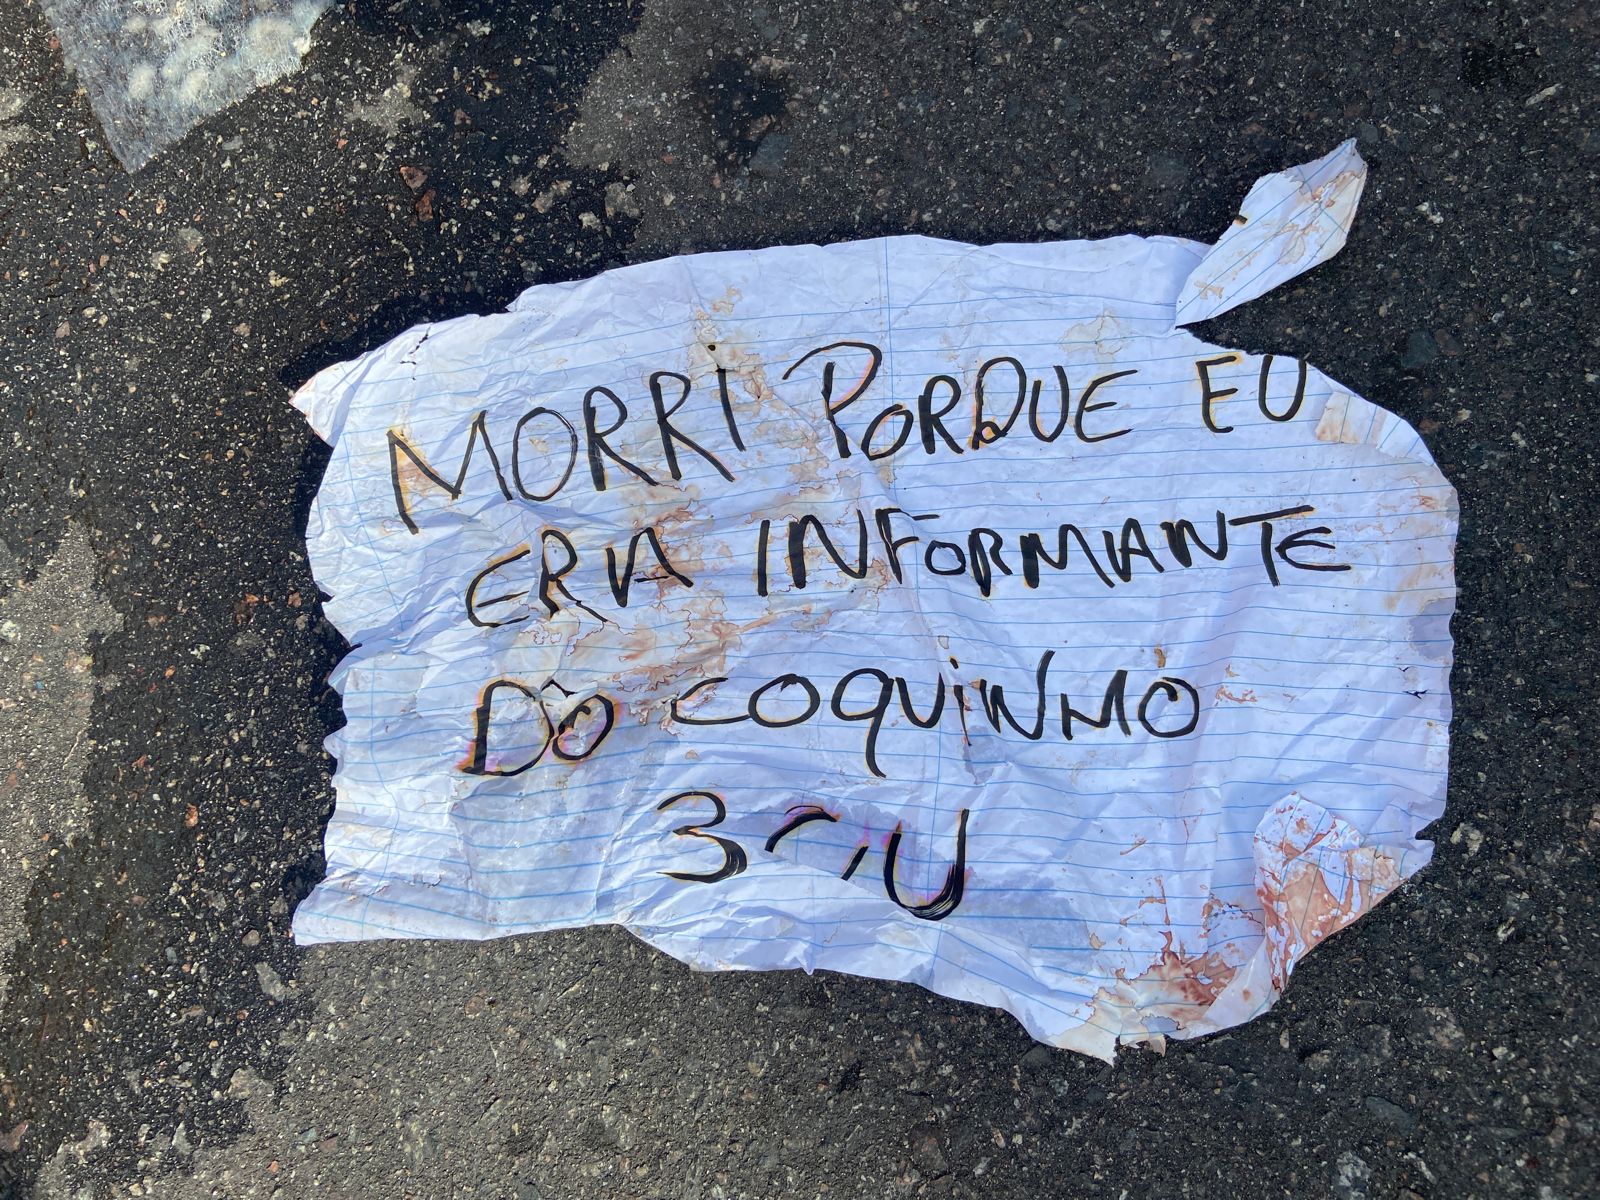 MORRI PORQUE EU
ERA INFORMANTE
DO COQUINHO
3